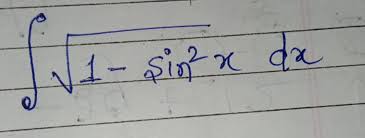 ∫ √(1 - sin² x) dx